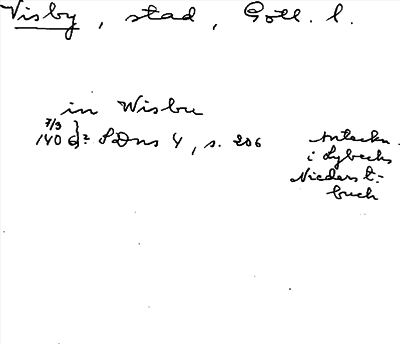 Visby, stad, Gotl. l.
in Wisbu
7/3
1406}? SDns 4, s. 206
Anteckn.
i Lybecks
Niederst.-
buch